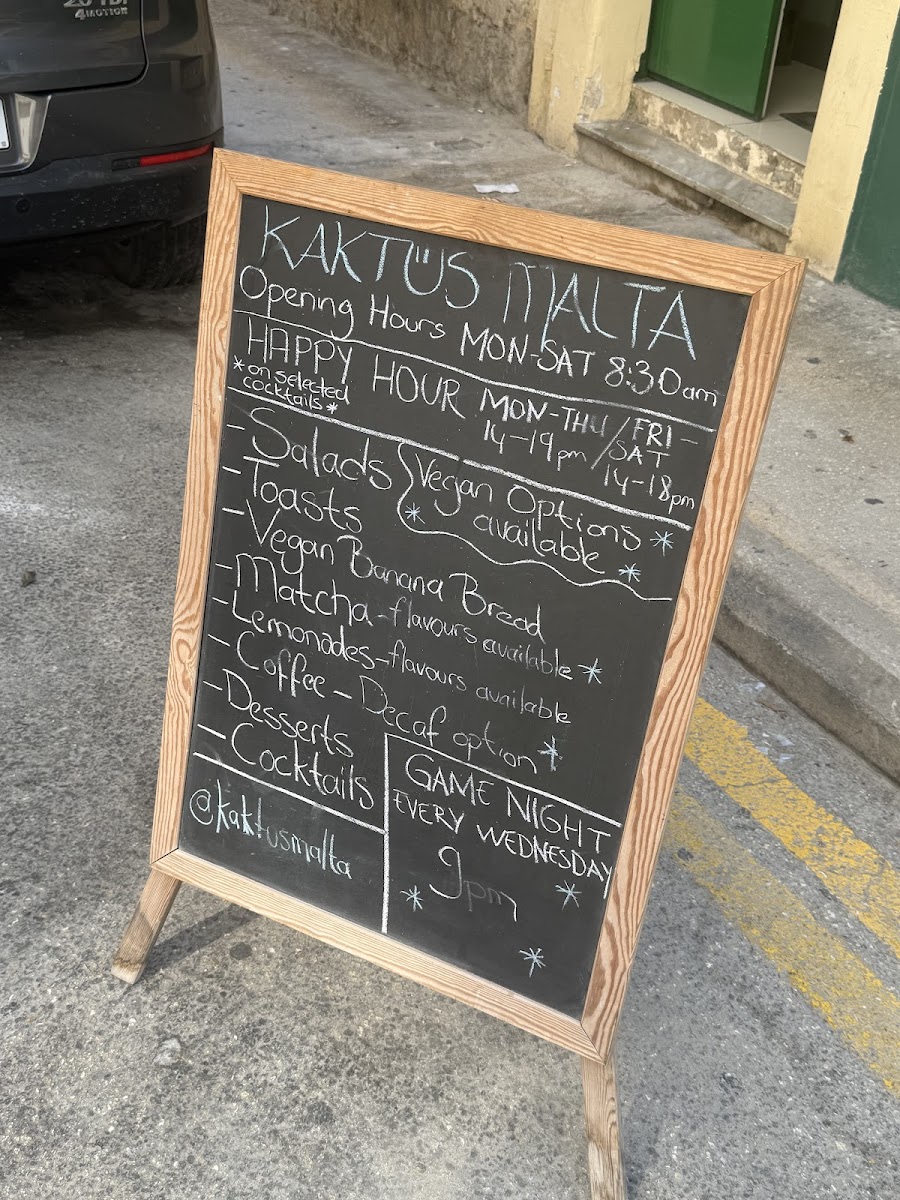 2.0 TDI
4MOTION
KAKTÜS MALTA
Opening Hours MON-SAT 8:30am
HAPPY HOUR
*on selected
cocktails*
MON-THU / FRI-
SAT
14-19pm / 14-18pm
- Salads
Vegan Options
available
- Toasts
- Vegan Banana Bread
- Matcha - flavours available
- Lemonades - flavours available
- Coffee - Decaf option
- Desserts
- Cocktails
@kaktusmalta
GAME NIGHT
EVERY WEDNESDAY
9pm